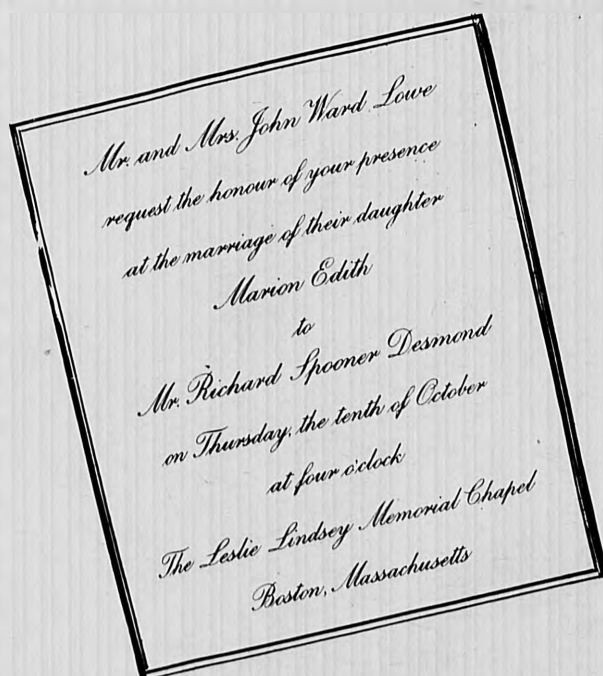 Mr. and Mrs. John Ward Lowe
request the honour of your presence
at the marriage of their daughter
Marion Edith
to
Mr. Richard Spooner Desmond
on Thursday, the tenth of October
at four o'clock
The Leslie Lindsey Memorial Chapel
Boston, Massachusetts